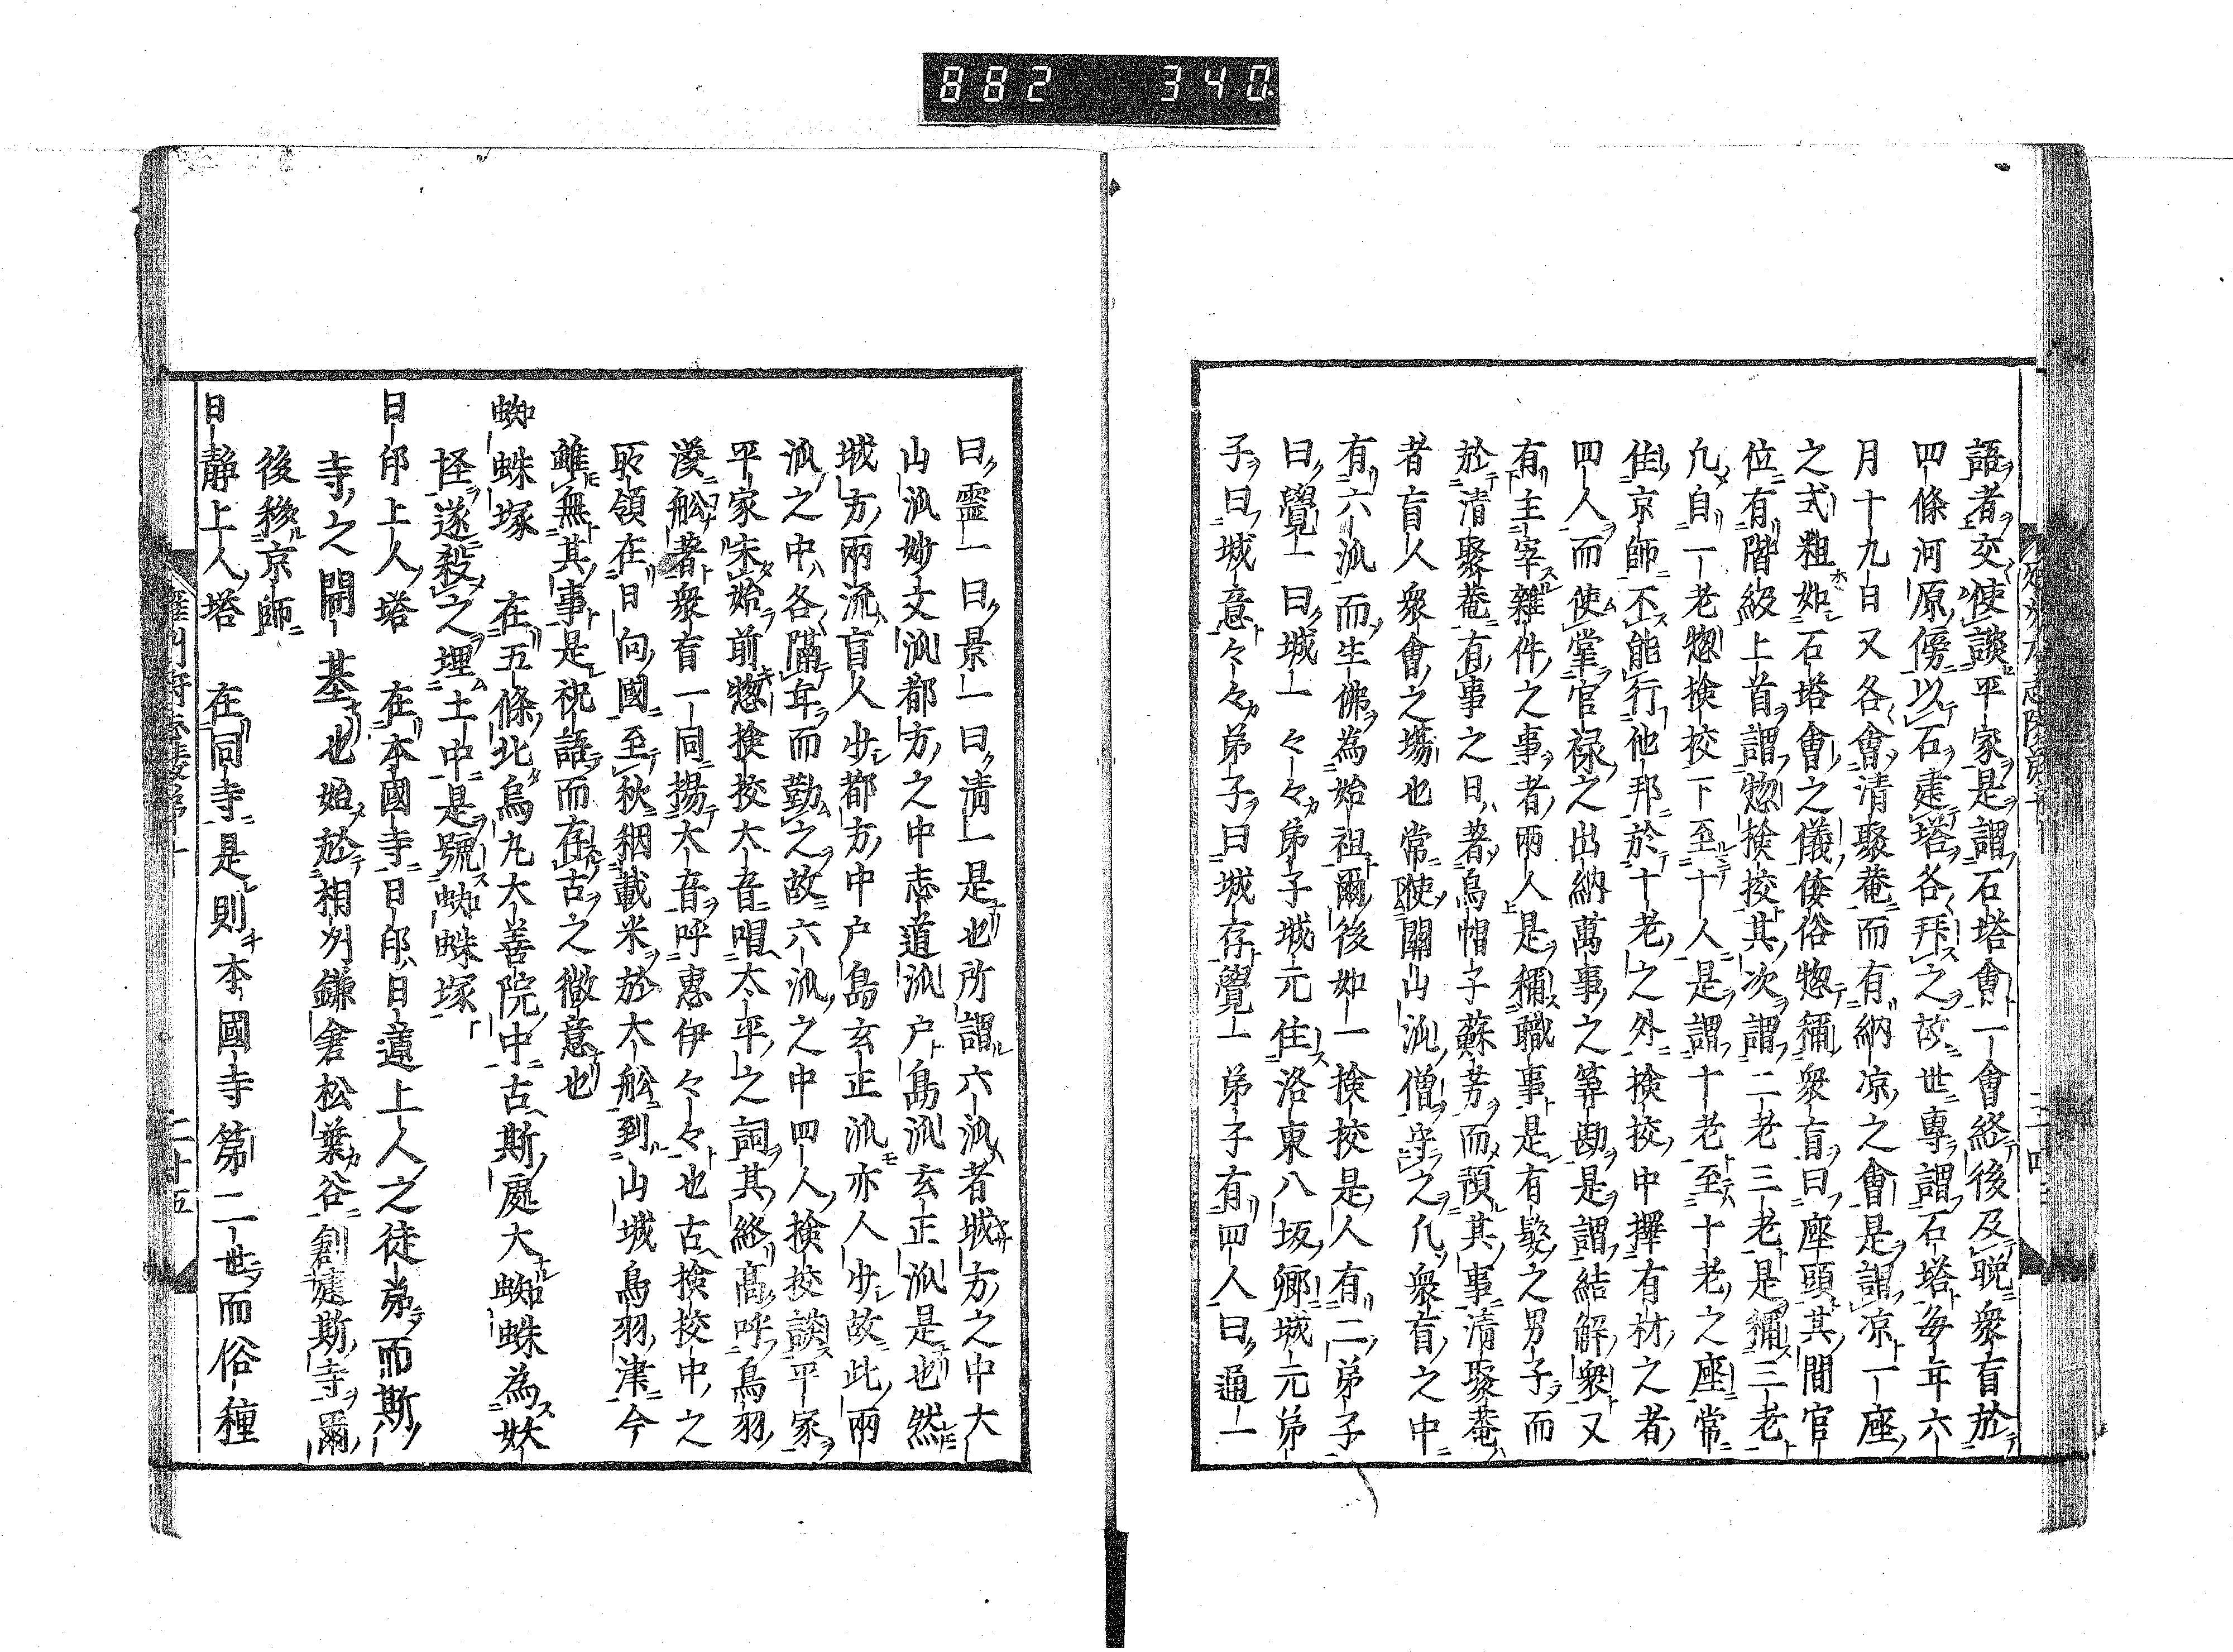 882 340
語者交使談平家是謂石塔會一會終後及晩衆盲於
四條河原傍以石建塔各拜之故世專謂石塔毎年六
月十九日又各會清聚菴而有納凉之會是謂凉一座
之式粗如石塔會之儀倭俗惣稱衆盲曰座頭其間官
位有階級上首謂惣撿挍其次謂二老三老是稱三老
凢自一老惣撿挍下至十人是謂十老至十老之座常
住京師不能行他邦於十老之外撿挍中擇有材之者
四人而使掌官禄之出納萬事之筭勘是謂結解衆又
有主宰雜件之事者兩人是稱職事是有髮之男子而
於清聚菴有事之日著烏帽子蘇芳而預其事清聚菴
者盲人衆會之場也常使關山派僧守之凢衆盲之中
有六派而生佛為始祖爾後如一撿挍是人有二弟子
曰覺一曰城一々々弟子城元住洛東八坂鄉城元弟
子曰城意々々弟子曰城存覺一弟子有四人曰通一
曰靈一曰景一曰清一是也所謂六派者城方之中大
山派妙文派都方之中志道派户島派玄正派是也然
城方兩流盲人少都方中户島玄正派亦人少故此兩
派之中各隔年而勤之故六派之中四人撿挍談平家
平家未始前惣撿挍太音唱太平之詞其終髙呼鳥羽
湊舩著衆盲一同揚太音呼惠伊々々也古撿挍中之
所領在日向國至秋稇載米於大舩到山城鳥羽津今
雖無其事是祝語而存古之徵意也
蜘蛛塚 在五條北烏丸大善院中古斯處大蜘蛛為妖
怪遂殺之埋土中是號蜘蛛塚
日印上人塔 在本國寺日印日蓮上人之徒弟而斯
寺之開基也始於相州鎌倉松葉谷創建斯寺爾
後移京師
日靜上人塔 在同寺是則本國寺第二世而俗種